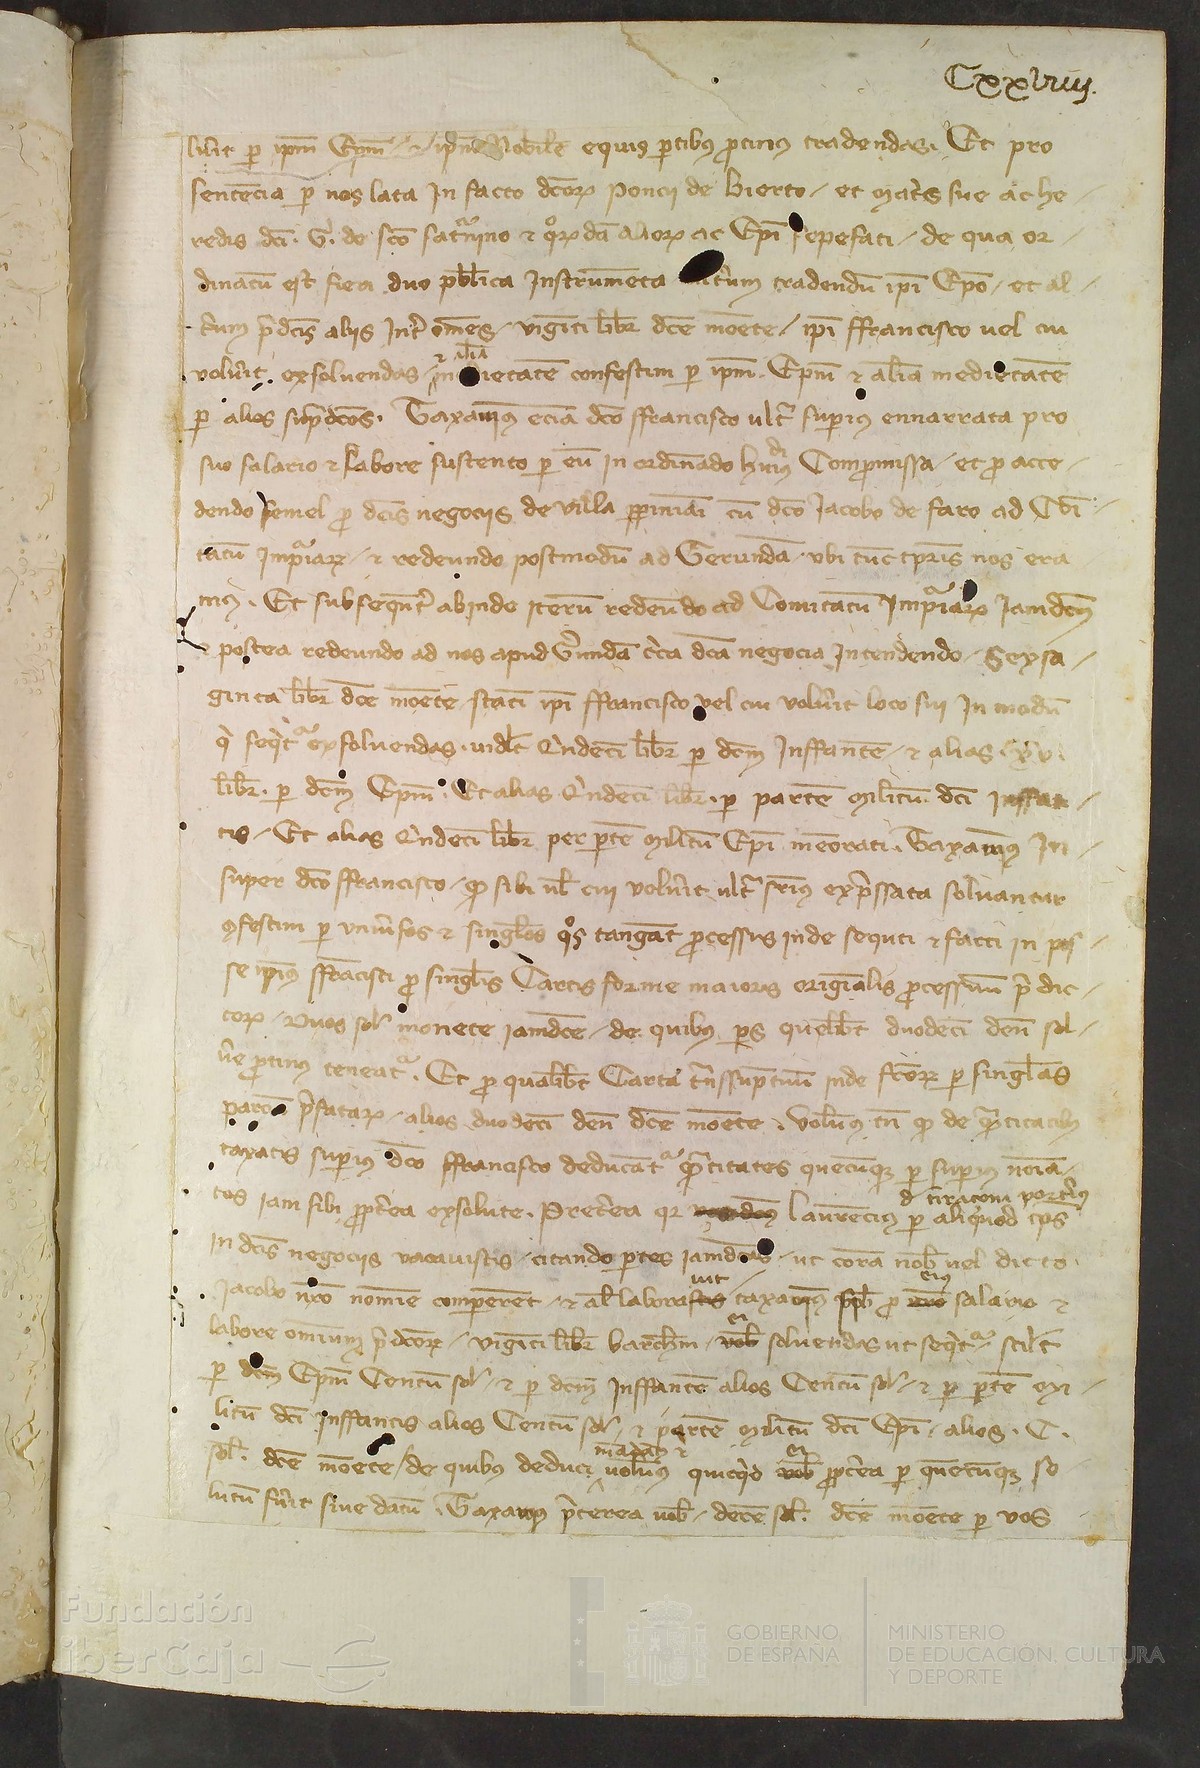 Cxxviij.
libr per ipm Epm / et ipm Nobile equis ptibus protinus tradendas. Et pro
sentencia per nos lata In facto dcor Poncii de bierto / et matris sue ac he-
redis dci. G. de sco satnino et qordā alior ac Epi sepefati / de qua or-
dinatū est fiea duo pblica Instrumenta tradendū ipi Epo / et al-
tum pdcis aliis Intr omes / viginti libr dce monete / ipi ffrancisco uel cui
voluit exsoluendas / medietatē confestim per ipm Epm et aliā medietatē
per alios supdcos. Taxamus eciā dco ffrancisco ultr superius ennarrata pro
suo salario et labore sustento per eū in ordinādo huius Compromissa / et pro acce-
dendo semel pro dcis negociis de villa ppiniāi cū dco Jacobo de faro ad Comi-
tatū Impiar / et redeundo postmodū ad Gerundā / ubi tunc tpris nos era-
mus. Et subsequntr abinde iterū redeūdo ad Comitatū Impiar Iamdcm
et postea redeundo ad nos apud Gerundā circa dca negocia Intendendo / Sexsa-
ginta libr dce monete stati ipi ffrancisco vel cui voluit loco sui In modū
qi seqitr exsoluendas. vidlt Qindeci libr per dcm Inffantē / et alias .xv.
libr. per dcm Epm. Et alias Qindeci libr. per partē militū dci Inffan-
tis / Et alias Qindeci libr per ptē militū Epi meorati. Taxamus In-
super dco ffrancisco / qp sibi ul cui voluit ultr srius expssata soluantur
qfestim per uniuersos et singlos qos tangat processus inde sequti et facti in pos-
se ipius ffrancisci pro singlis Cartis forme maioris originalis processuum p dic-
tor / Duos sol monete iamdce / de quibus ps quelibet duodeci den sol-
ue protinus teneatr. Et pro qualibet Carta trssuptiuū inde fcor per singlas
parciū pfatar / alios duodeci den dce monete. Volumus tn qp de qntitatibus
taxatis superius dco ffrancisco deducātr qntitates quecūqz per superius noia-
tos iam sibi propterea exsolute. Preterea qr laurencius de tiracona porterius per aliquod tps
in dcis negociis vacauistis / citando ptes iamdcas / ut corā nob vel dicto
Jacobo nro nomine comperent / et al laborauit / taxamus sibi pro eius salario et
labore omnium pdcor / viginti libr barchn / ei soluendas ut seqitr / scilt
per dcm Epm Centū sol / et per dcm Inffantē alios Centū sol / et per ptē mi-
litū dci Inffancis alios Centū sol / et partē militū dci Epi / alios .C.
sol. dce monete / de quibus deduci mādam et volumus quicqid ei propterea per quemcūqz so-
lutū fuit siue datū. Taxamus preterea uob / decē sol. dce monete per vos
Fundación
iberCaja
GOBIERNO
DE ESPAÑA
MINISTERIO
DE EDUCACIÓN, CULTURA
Y DEPORTE